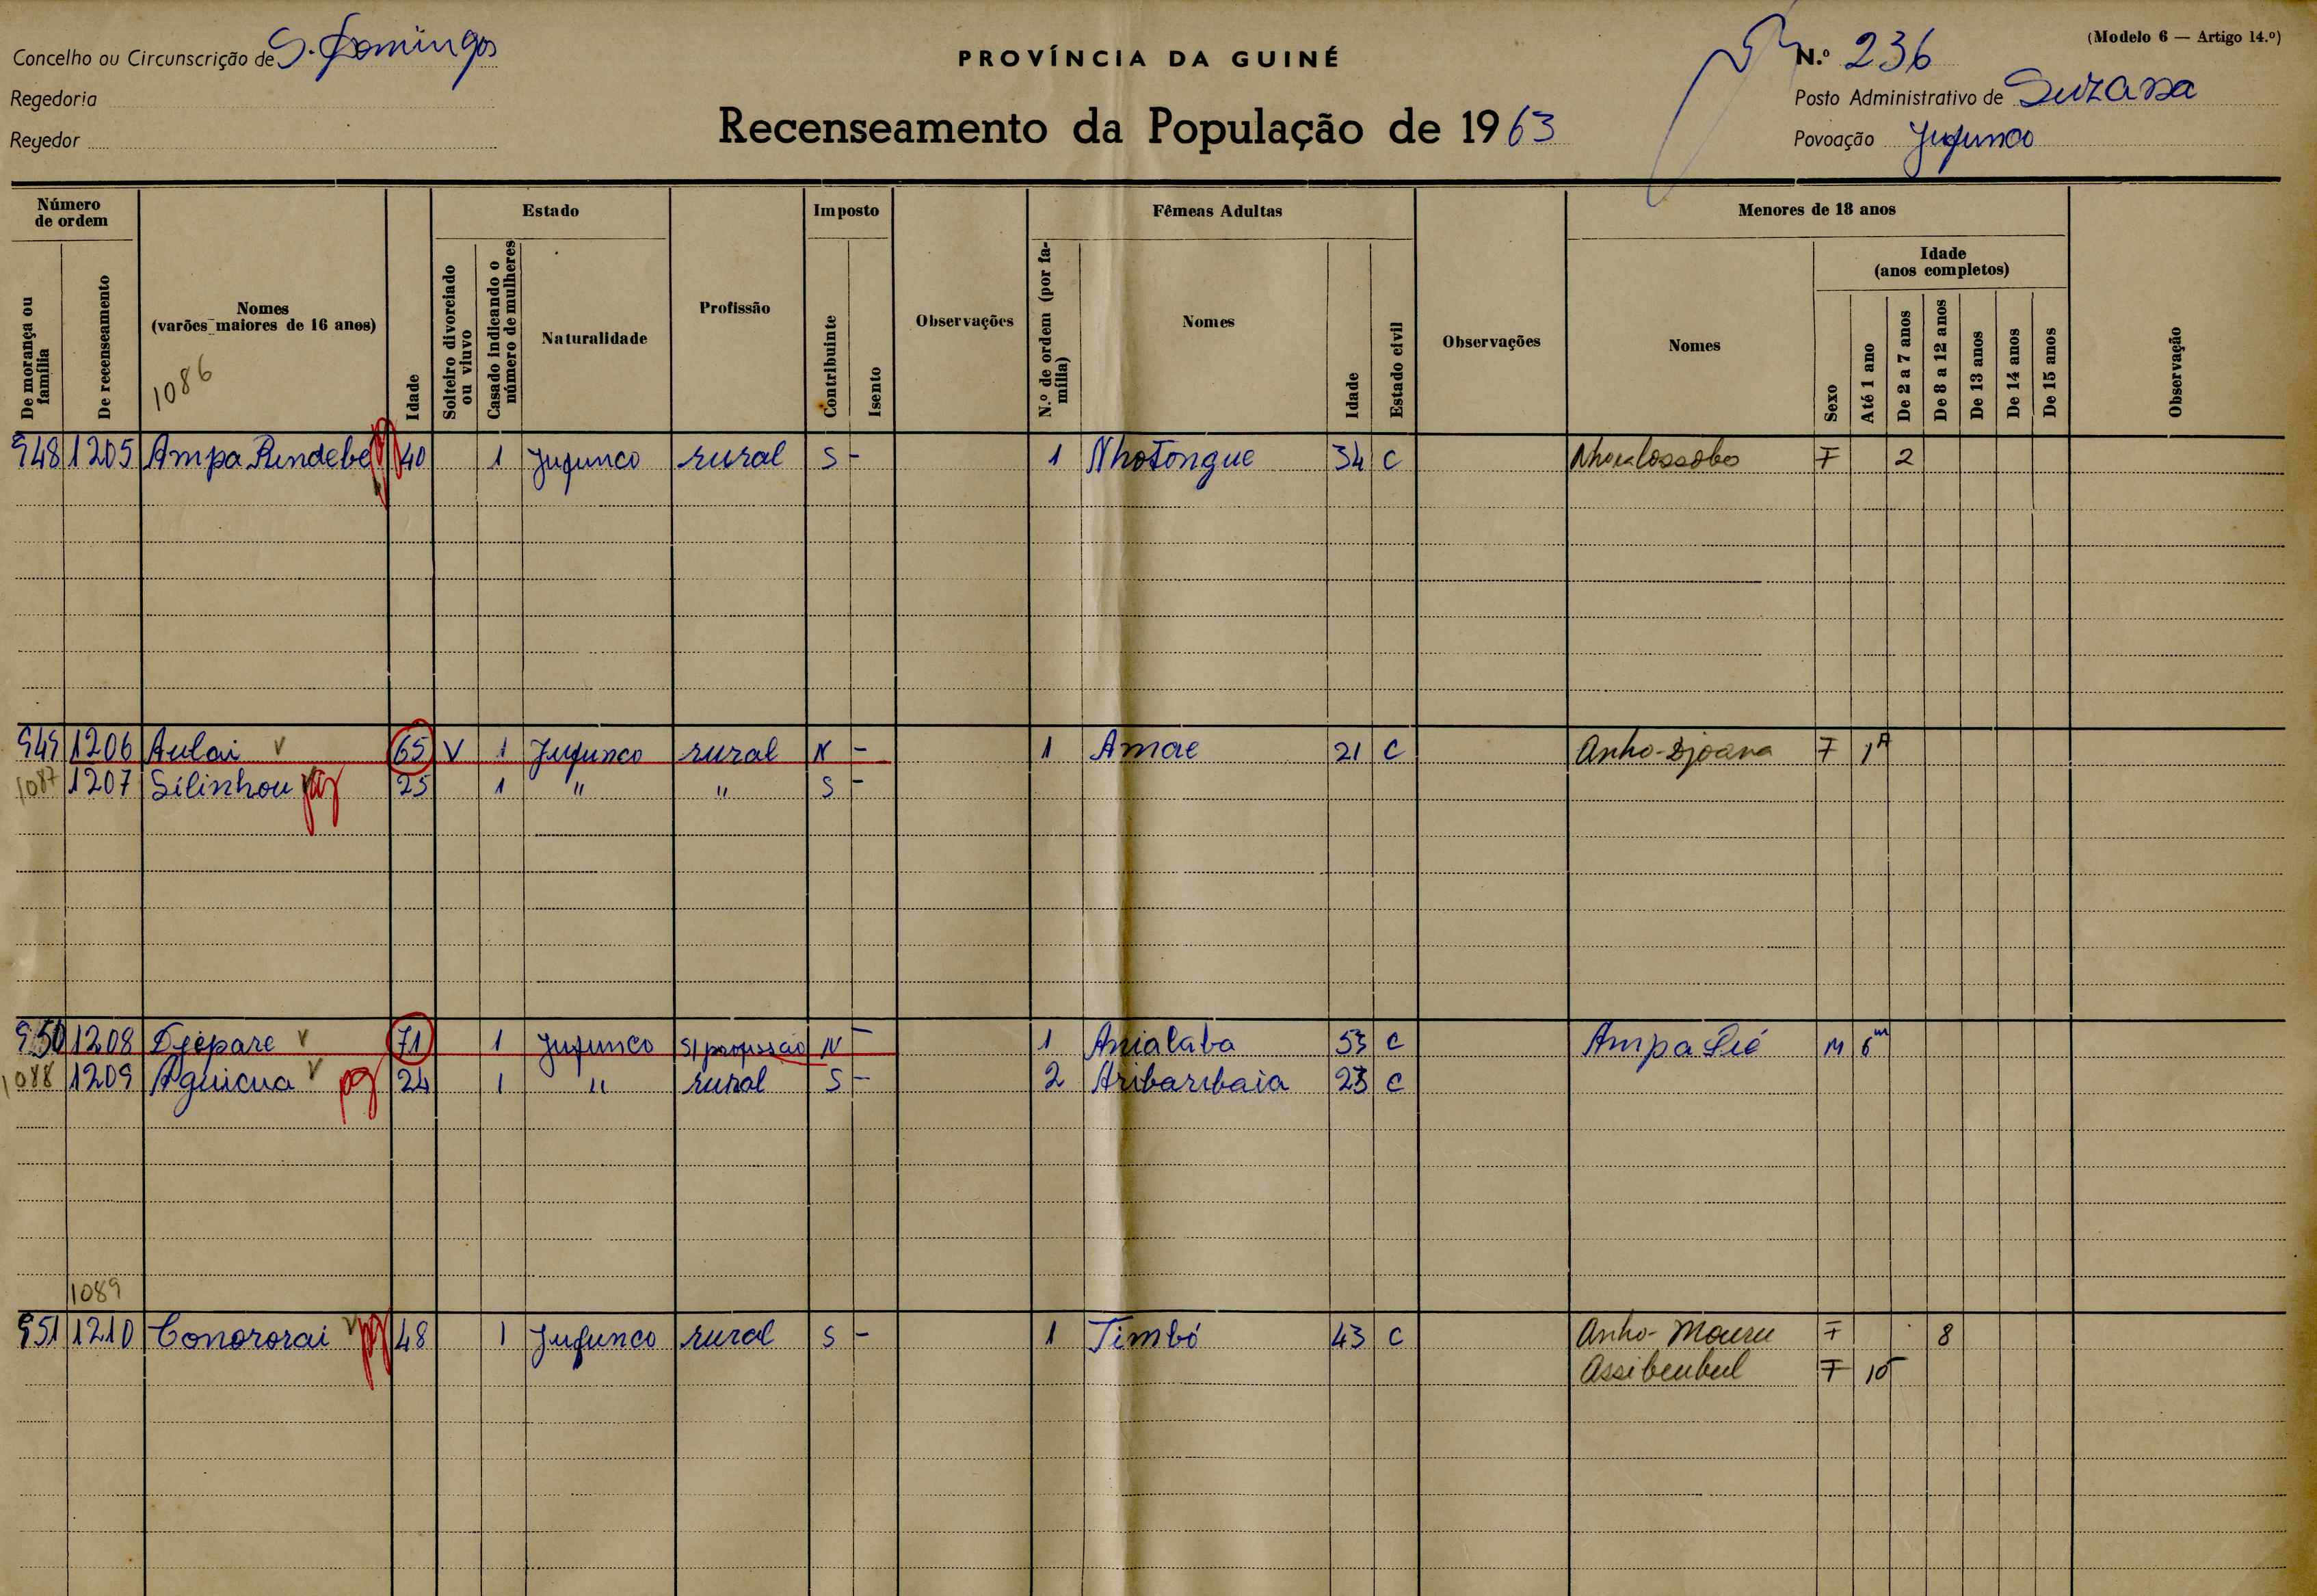 Concelho ou Circunscrição de S. Domingos
Regedoria
Regedor
PROVÍNCIA DA GUINÉ
Recenseamento da População de 1963
(Modelo 6 — Artigo 14.º)
N.º 236
Posto Administrativo de Suzana
Povoação Jufunco
Número de ordem
De morança ou família
De recenseamento
Nomes
(varões maiores de 16 anos)
1086
Idade
Estado
Solteiro divorciado ou viuvo
Casado indicando o número de mulheres
Naturalidade
Profissão
Imposto
Contribuinte
Isento
Observações
Fêmeas Adultas
N.º de ordem (por família)
Nomes
Idade
Estado civil
Observações
Menores de 18 anos
Nomes
Sexo
Idade
(anos completos)
Até 1 ano
De 2 a 7 anos
De 8 a 12 anos
De 13 anos
De 14 anos
De 15 anos
Observação
948 1205 Ampa Rindebe pg 40 1 Jufunco rural S - 1 Nhotongue 34 C F 2
949 1206 Aulai V 65 V 1 Jufunco rural N - 1 Amae 21 C Anho-Djoana F 1A
1087 1207 Silinhou pg 25 1 " " S -
950 1208 Djepare V 71 1 Jufunco S/ profissão N - 1 Anialaba 53 C Ampa Lié M 6m
1088 1209 Aguicua V pg 24 1 " rural S - 2 Aribaribaia 23 C
1089
951 1210 Conororai V pg 48 1 Jufunco rural S - 1 Timbó 43 C Anho- F 8
F